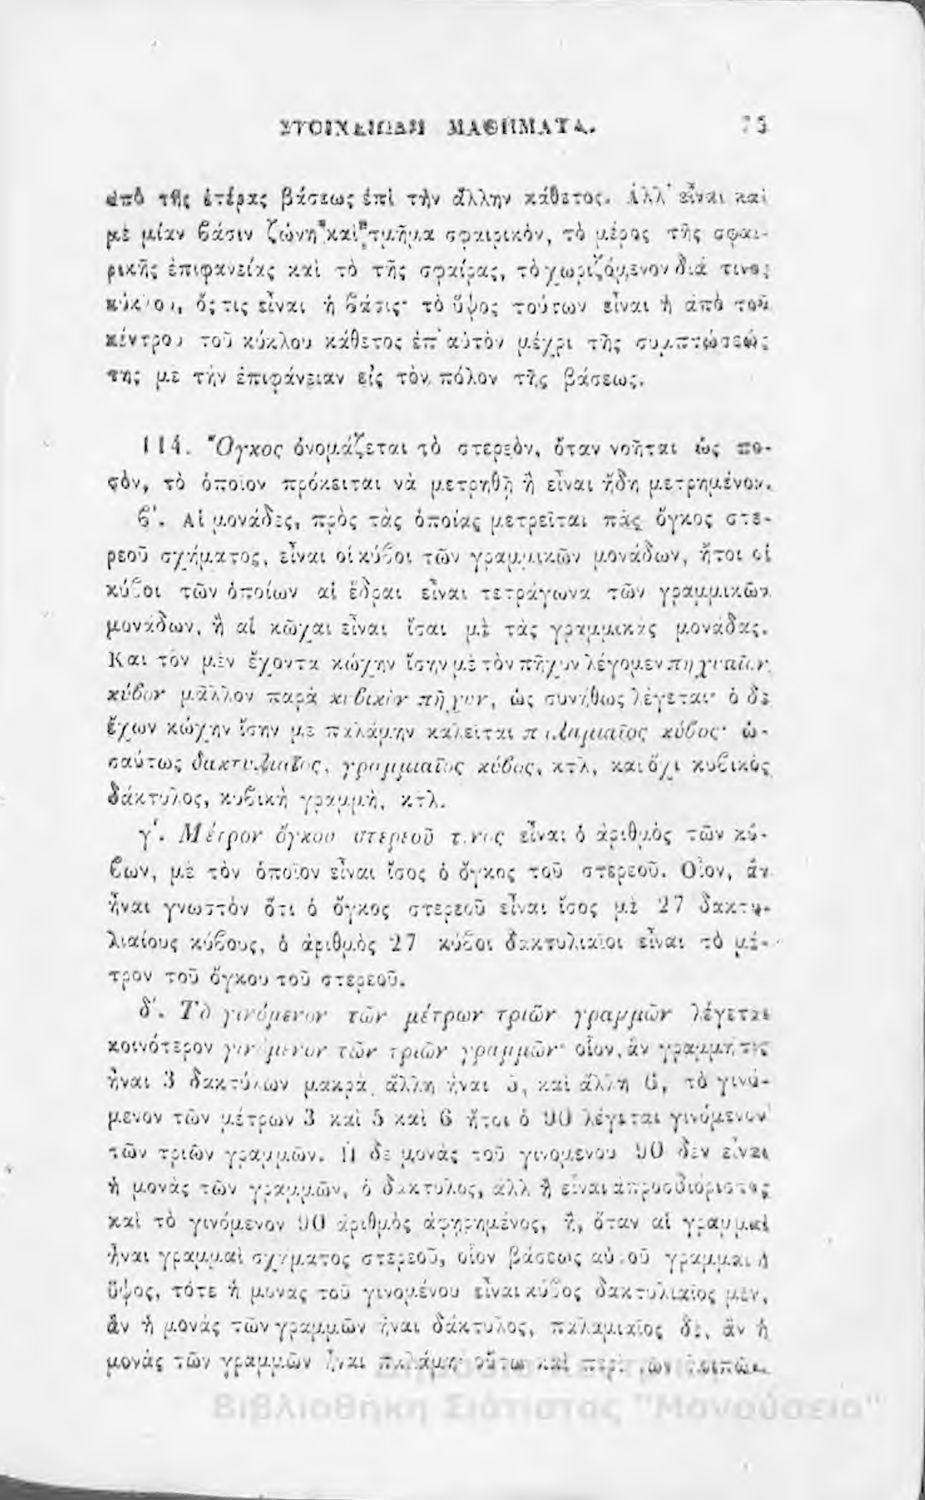 ΣΤΟΙΧΕΙΩΔΗ ΜΑΘΗΜΑΤΑ. 75
ἀπὸ τῆς ἑτέρας βάσεως ἐπὶ τὴν ἄλλην κάθετος. Ἀλλ' εἶναι καὶ
μὲ μίαν ϐάσιν ζώνη καὶ τμῆμα σφαιρικὸν, τὸ μέρος τῆς σφαι-
ρικῆς ἐπιφανείας καὶ τὸ τῆς σφαίρας, τὸ χωριζόμενον διά τινος
κύκλου, ὅς τις εἶναι ἡ ϐάσις· τὸ ὕψος τούτων εἶναι ἡ ἀπὸ τοῦ
κέντρου τοῦ κύκλου κάθετος ἐπ' αὐτὸν μέχρι τῆς συμπτώσεώς
της με τὴν ἐπιφάνειαν εἰς τὸν πόλον τῆς βάσεως.
114. Ὄγκος ὀνομάζεται τὸ στερεὸν, ὅταν νοῆται ὡς πο-
σὸν, τὸ ὁποῖον πρόκειται νὰ μετρηθῇ ἢ εἶναι ἤδη μετρημένον.
ϐ'. Αἱ μονάδες, πρὸς τὰς ὁποίας μετρεῖται πᾶς ὄγκος στε-
ρεοῦ σχήματος, εἶναι οἱ κύϐοι τῶν γραμμικῶν μονάδων, ἤτοι οἱ
κύϐοι τῶν ὁποίων αἱ ἕδραι εἶναι τετράγωνα τῶν γραμμικῶν
μονάδων, ἢ αἱ κῶχαι εἶναι ἴσαι μὲ τὰς γραμμικὰς μονάδας.
Και τὸν μὲν ἔχοντα κώχην ἴσην μὲ τὸν πῆχυν λέγομεν πηχυαῖον
κύϐον μᾶλλον παρὰ κυϐικὸν πῆχυν, ὡς συνήθως λέγεται· ὁ δὲ
ἔχων κώχην ἴσην με παλάμην καλεῖται παλαμιαῖος κύϐος· ὡ-
σαύτως δακτυλιαῖος, γραμμιαῖος κύϐος, κτλ, καὶ ὄχι κυϐικὸς
δάκτυλος, κυϐικὴ γραμμὴ, κτλ.
γ'. Μέτρον ὄγκου στερεοῦ τινος εἶναι ὁ ἀριθμὸς τῶν κύ-
ϐων, μὲ τὸν ὁποῖον εἶναι ἴσος ὁ ὄγκος τοῦ στερεοῦ. Οἷον, ἂν
ἦναι γνωστὸν ὅτι ὁ ὄγκος στερεοῦ εἶναι ἴσος μὲ 27 δακτυ-
λιαίους κύϐους, ὁ ἀριθμὸς 27 κύϐοι δακτυλιαῖοι εἶναι τὸ μέ-
τρον τοῦ ὄγκου τοῦ στερεοῦ.
δ'. Τὸ γινόμενον τῶν μέτρων τριῶν γραμμῶν λέγεται
κοινότερον γινόμενον τῶν τριῶν γραμμῶν· οἷον, ἂν γραμμή τις
ἦναι 3 δακτύλων μακρὰ, ἄλλη ἦναι 5, καὶ ἄλλη 6, τὸ γινό-
μενον τῶν μέτρων 3 καὶ 5 καὶ 6 ἤτοι ὁ 90 λέγεται γινόμενον
τῶν τριῶν γραμμῶν. Ἡ δὲ μονὰς τοῦ γινομένου 90 δὲν εἶναι
ἡ μονὰς τῶν γραμμῶν, ὁ δάκτυλος, ἀλλ' ἢ εἶναι ἀπροσδιόριστος
καὶ τὸ γινόμενον 90 ἀριθμὸς ἀφῃρημένος, ἢ, ὅταν αἱ γραμμαὶ
ἦναι γραμμαὶ σχήματος στερεοῦ, οἷον βάσεως αὐτοῦ γραμμαὶ ἢ
ὕψος, τότε ἡ μονὰς τοῦ γινομένου εἶναι κύϐος δακτυλιαῖος μὲν,
ἂν ἡ μονὰς τῶν γραμμῶν ἦναι δάκτυλος, παλαμιαῖος δὲ, ἂν ἡ
μονὰς τῶν γραμμῶν ἦναι παλάμη· οὕτω καὶ περὶ τῶν λοιπῶν.
Βιβλιοθήκη Σιάτιστας "Μανούσεια"